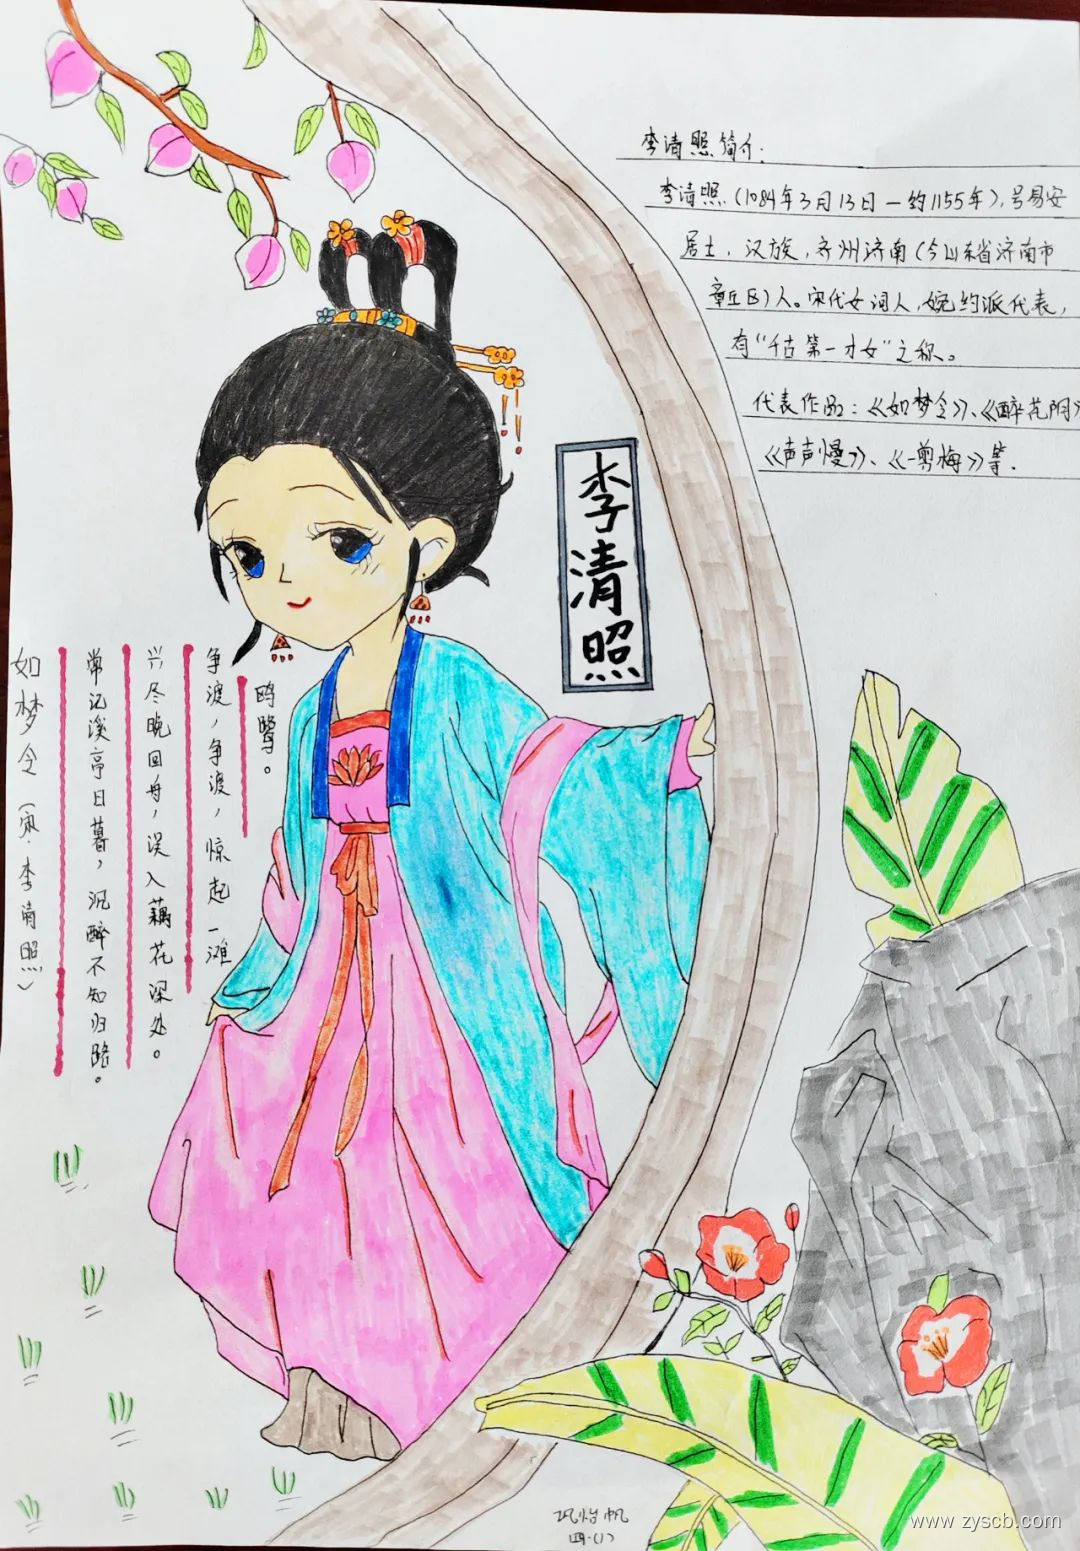 李清照简介:
李清照(1084年3月13日—约1155年),号易安
居士,汉族,齐州济南(今山东省济南市
章丘区)人。宋代女词人,婉约派代表,
有“千古第一才女”之称。
代表作品:《如梦令》、《醉花阴》
《声声慢》、《一剪梅》等.
李清照
如梦令(宋·李清照)
常记溪亭日暮,沉醉不知归路。
兴尽晚回舟,误入藕花深处。
争渡,争渡,惊起一滩
鸥鹭。
怡帆
四·(1)
www.zyscb.com